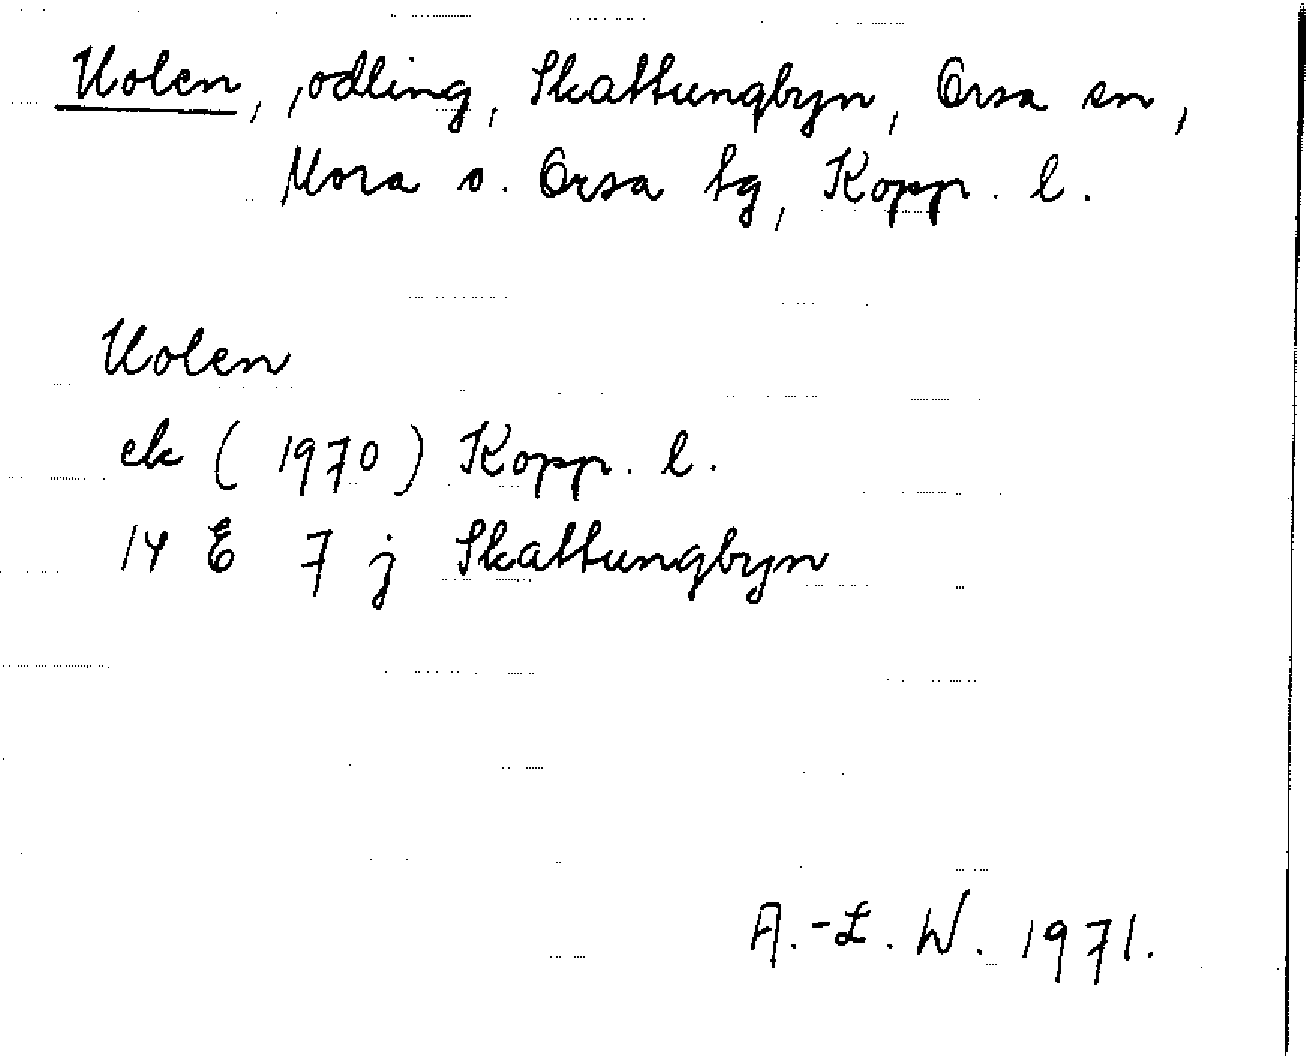 Uolen, odling, Skattungbyn, Orsa sn,
Mora o. Orsa tg, Kopp. l.
Uolen
ek (1970) Kopp. l.
14 E 7 j Skattungbyn
A.-L. W. 1971.